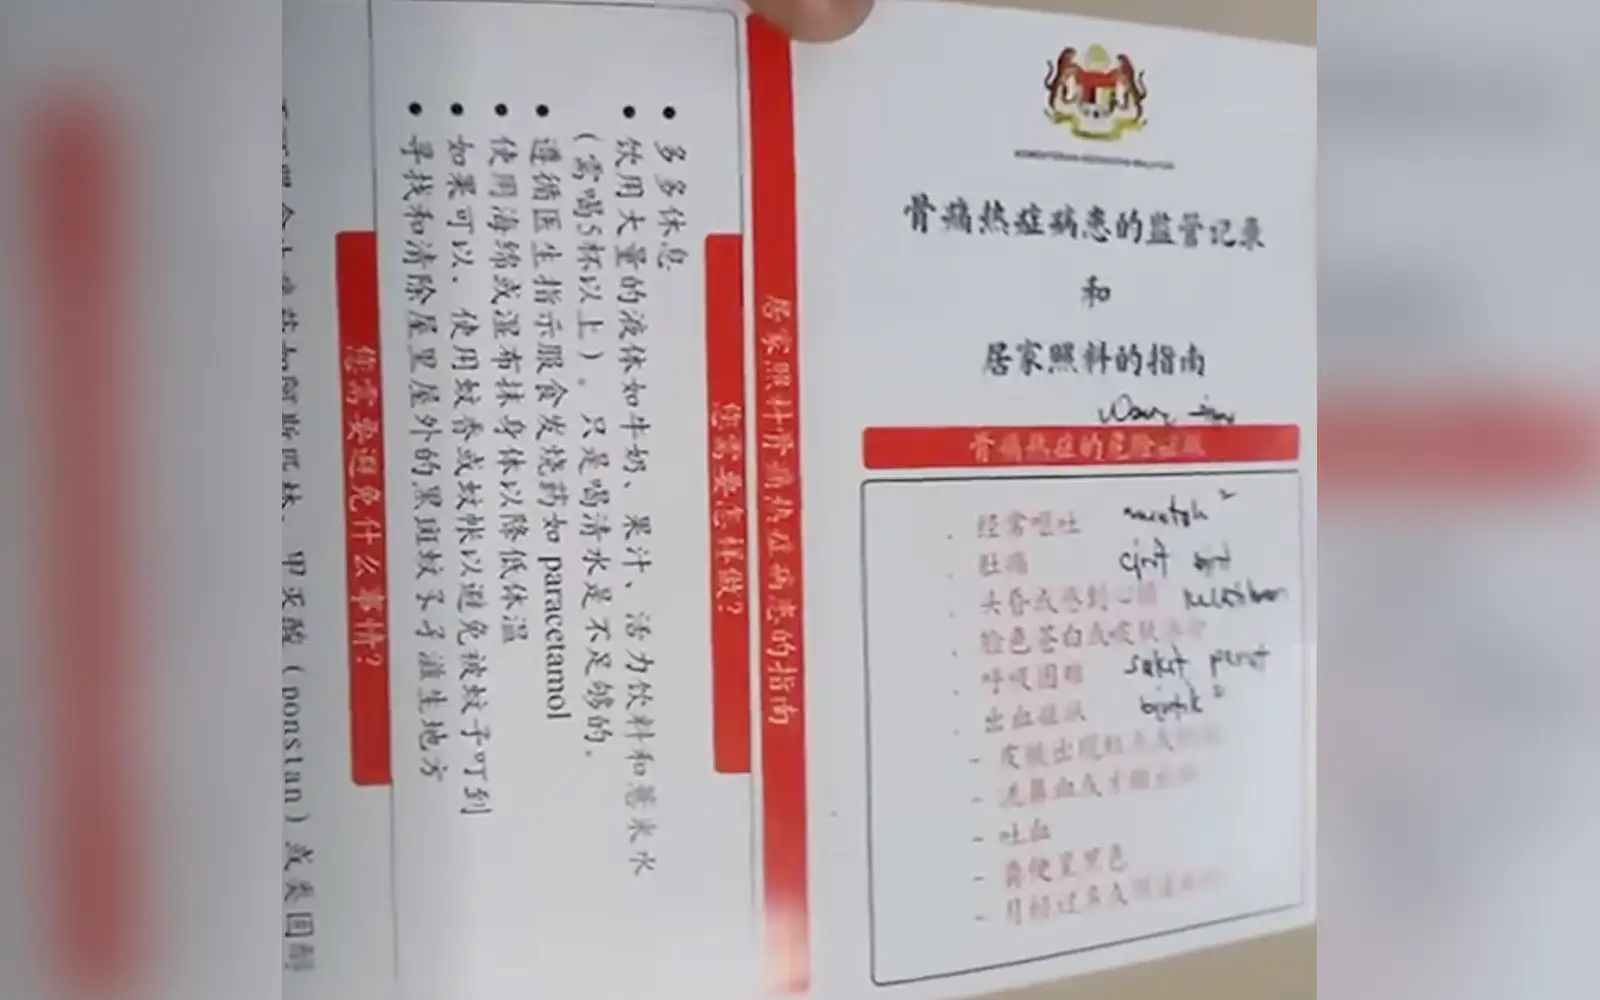 KEMENTERIAN KESIHATAN MALAYSIA
骨痛热症病患的监管记录
和
居家照料的指南
骨痛热症的危险症状
经常呕吐
肚痛
头昏或感到
脸色苍白或皮肤
呼吸困难
sakit perut
出血症状
- 皮肤出现红点或
- 流鼻血或牙龈出血
- 吐血
- 粪便呈黑色
- 月经过多或
居家照料骨痛热症病患的指南
您需要怎样做？
• 多多休息
• 饮用大量的液体如牛奶、果汁、活力饮料和薏米水
(需喝5杯以上)。只是喝清水是不足够的。
• 遵循医生指示服食发烧药如 paracetamol
• 使用海绵或湿布抹身体以降低体温
• 如果可以，使用蚊香或蚊帐以避免被蚊子叮到
• 寻找和清除屋里屋外的黑斑蚊孑孓滋生地方
您需要避免什么事情？
阿斯匹林、甲灭酸 (ponstan) 或类固醇